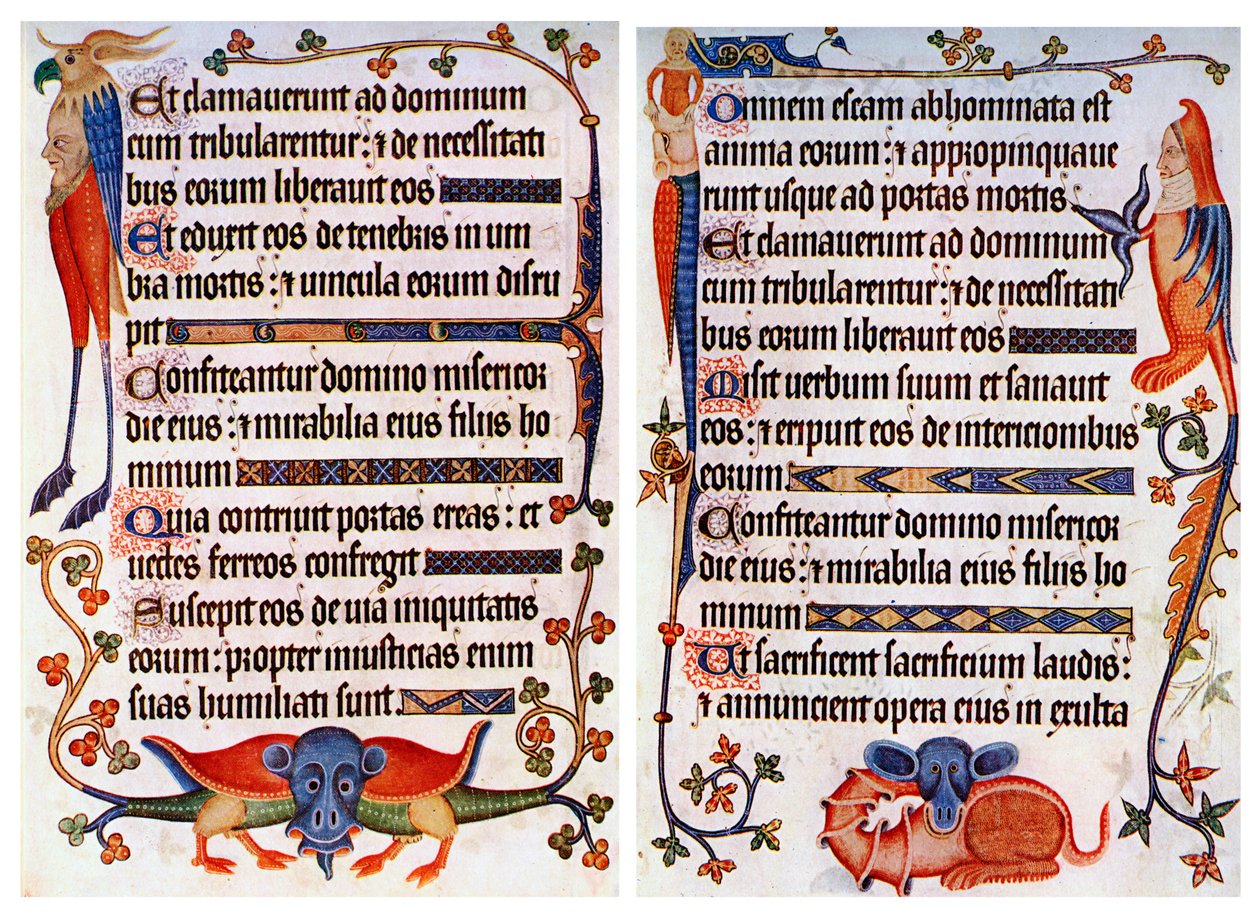 Et clamauerunt ad dominum
cum tribularentur: ⁊ de necessitati
bus eorum liberauit eos
Et eduxit eos de tenebris in um
bra mortis: ⁊ uincula eorum disru
pit
Confiteantur domino misericor
die eius: ⁊ mirabilia eius filiis ho
minum
Quia contriuit portas ereas: et
uectes ferreos confregit
Suscepit eos de uia iniquitatis
eorum: propter iniusticias enim
suas humiliati sunt.
Omnem escam abhominata est
anima eorum: ⁊ appropinquaue
runt usque ad portas mortis.
Et clamauerunt ad dominum
cum tribularentur: ⁊ de necessitati
bus eorum liberauit eos
Misit uerbum suum et sanauit
eos: ⁊ eripuit eos de intericionibus
eorum.
Confiteantur domino misericor
die eius: ⁊ mirabilia eius filiis ho
minum
Ut sacrificent sacrificium laudis:
⁊ annuncient opera eius in exulta